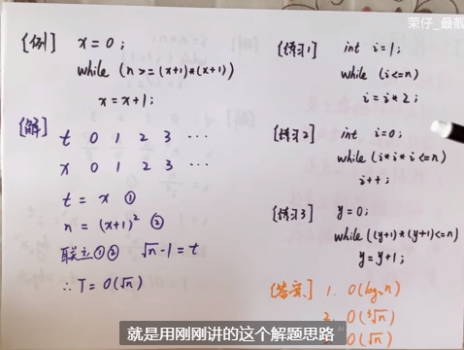 荣仔_最靓
[例] x=0;
while (n>=(x+1)*(x+1))
x=x+1;
[解] t 0 1 2 3 …
x 0 1 2 3 …
t = x ①
n = (x+1)² ②
联立①② √n-1=t
∴T=O(√n)
[练习1] int i=1;
while (i<=n)
i=i*2;
[练习2] int i=0;
while(i*i*i<=n)
i++;
[练习3] y=0;
while((y+1)*(y+1)<=n)
y=y+1;
[答案] 1. O(log₂n)
2. O(∛n)
O(√n)
就是用刚刚讲的这个解题思路